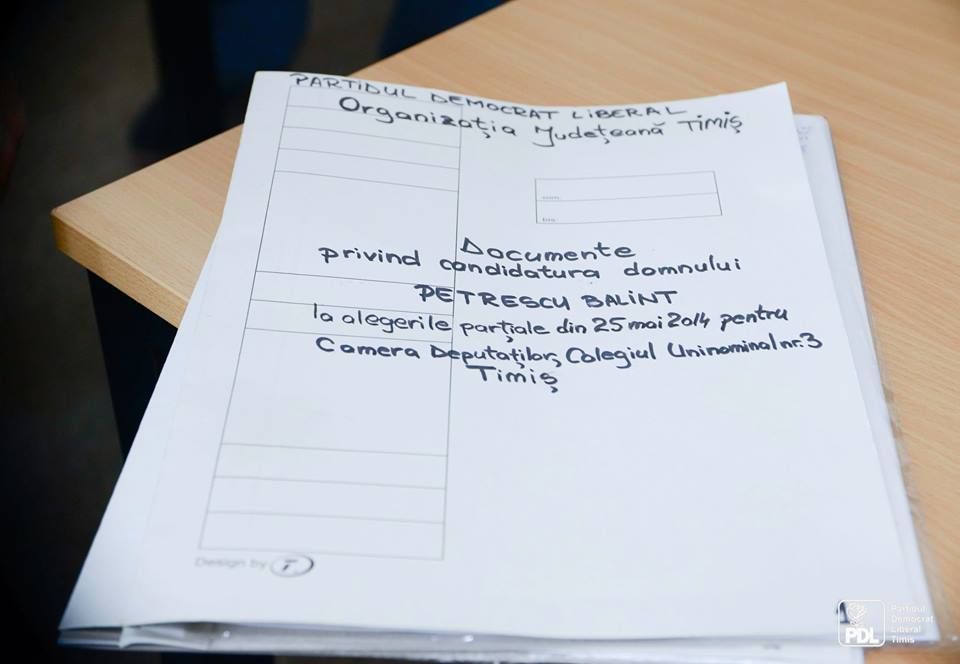 PARTIDUL DEMOCRAT LIBERAL
Organizația Județeană Timiș
Documente
privind candidatura domnului
PETRESCU BALINT
la alegerile parțiale din 25 mai 2014 pentru
Camera Deputaților, Colegiul Uninominal nr. 3
Timiș
Design by
PDL
Partidul
Democrat
Liberal
Timis